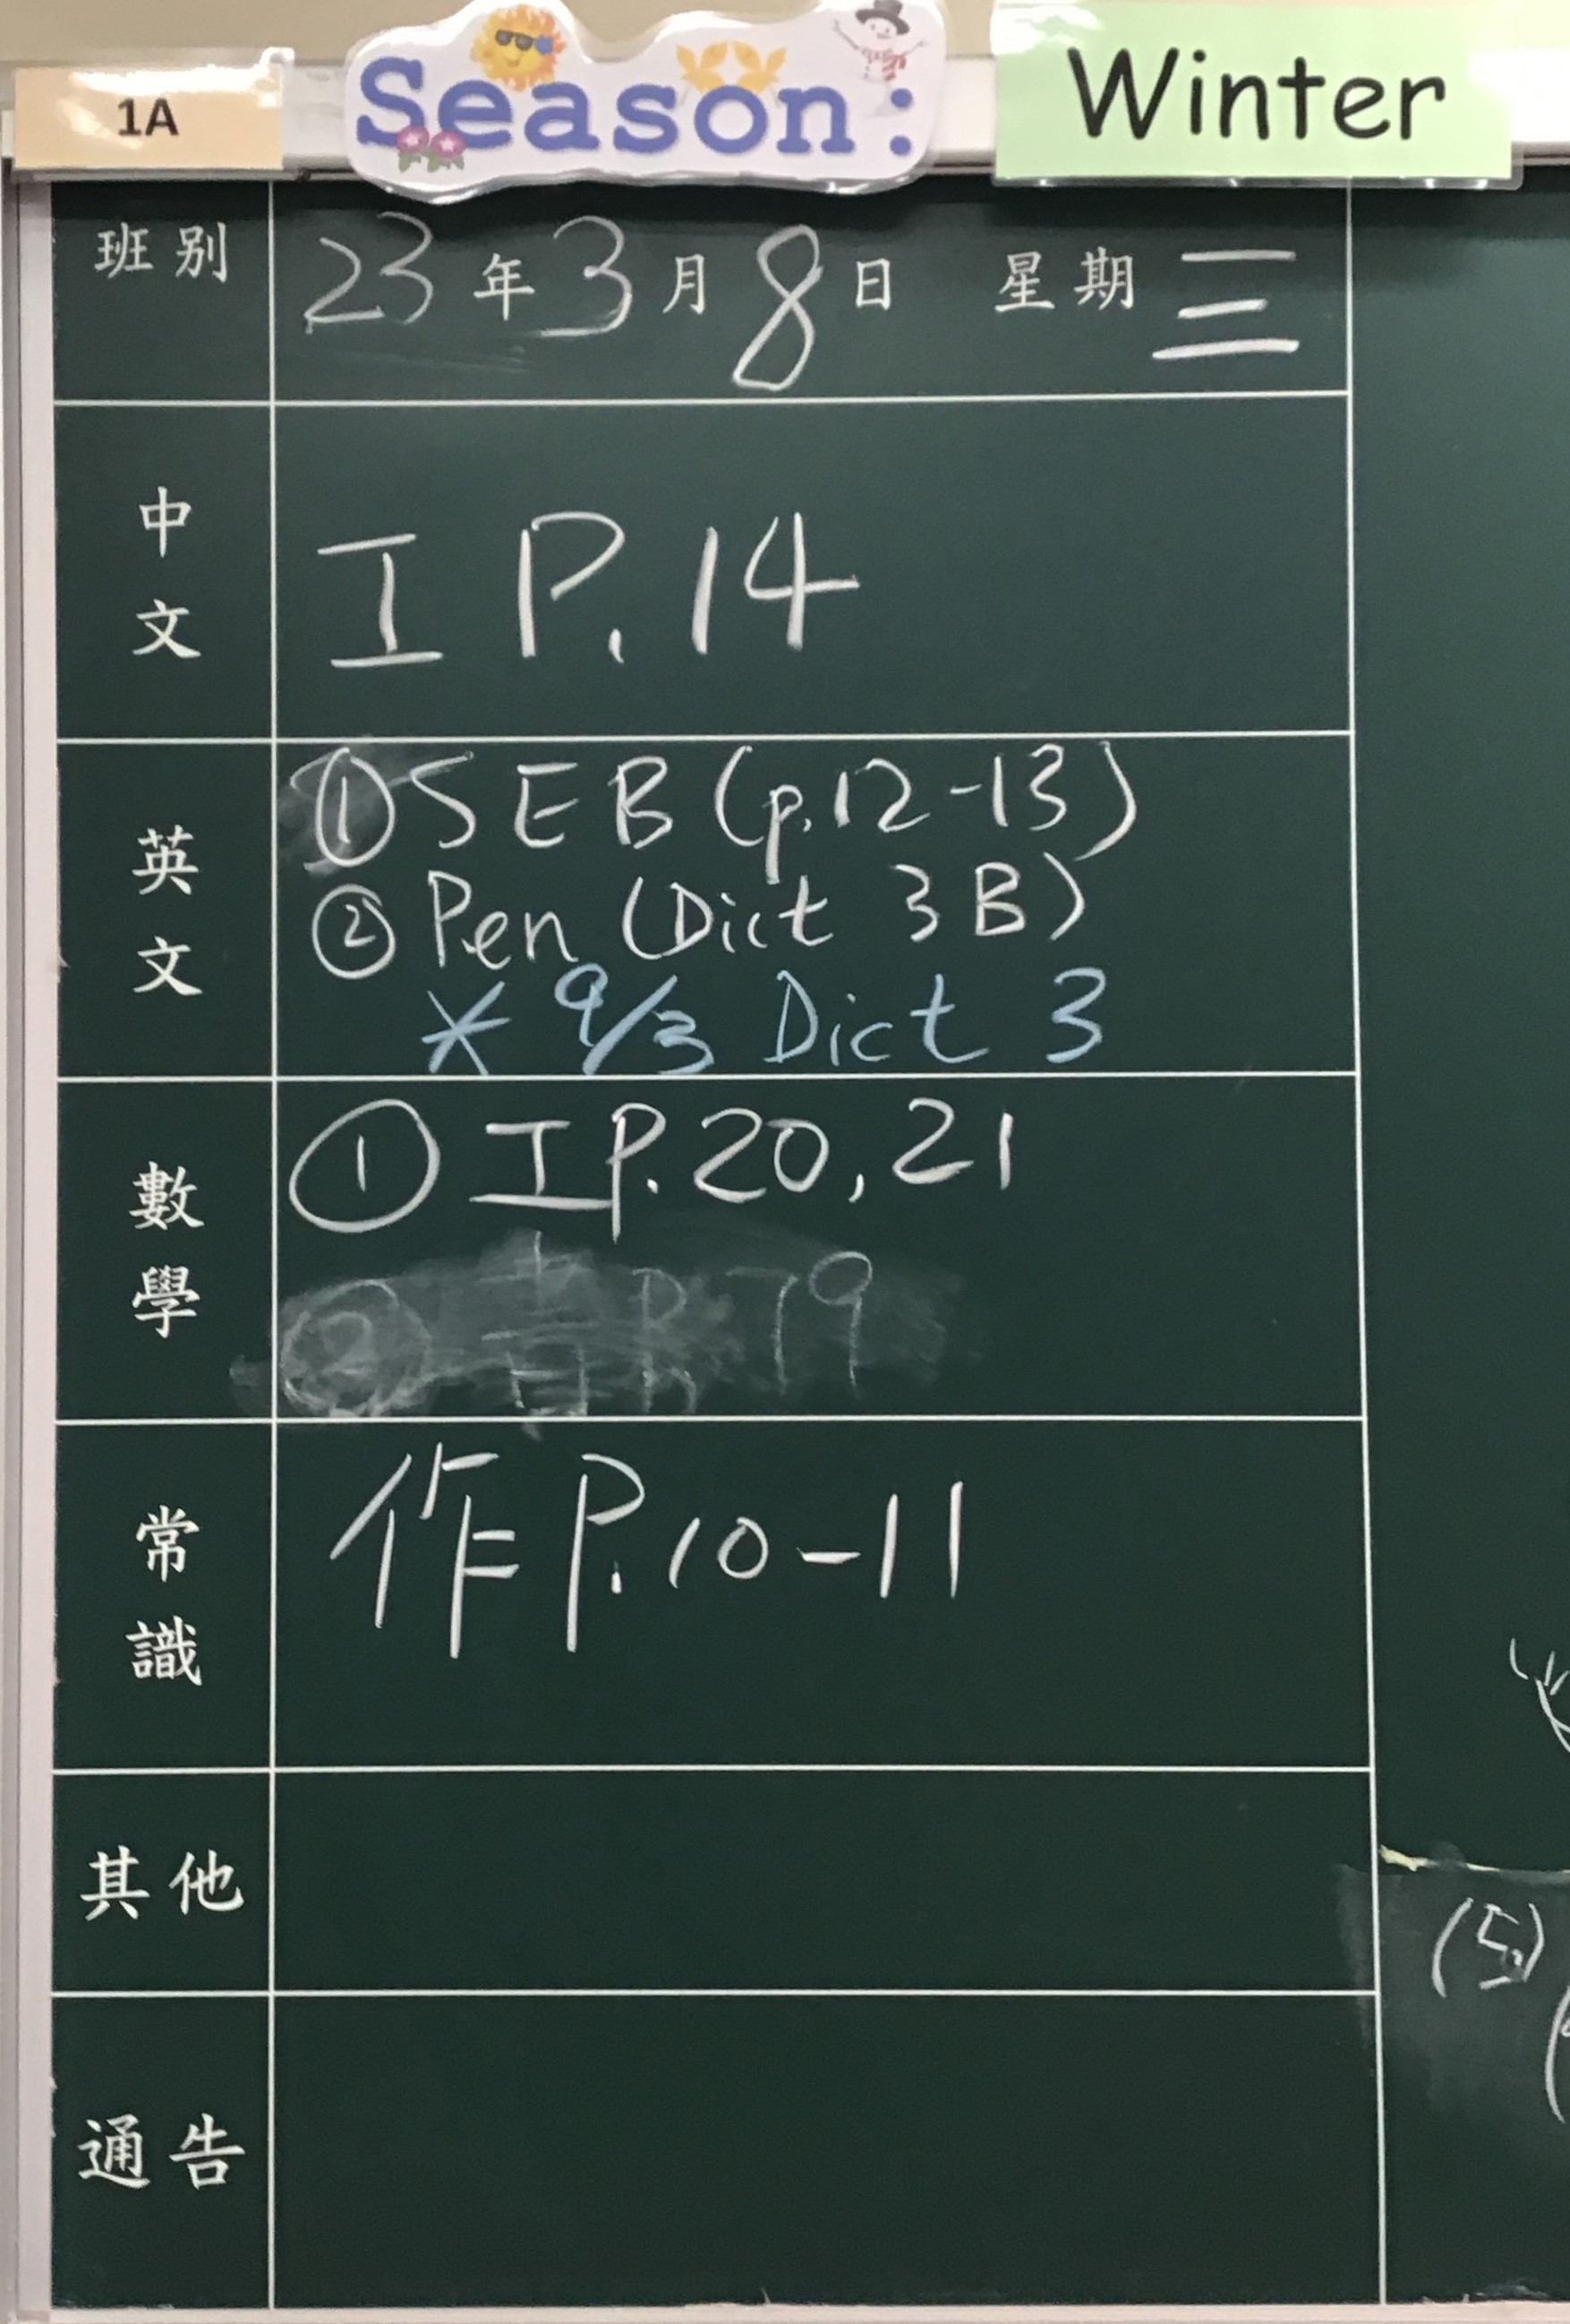 1A
Season:
Winter
班別
23年3月8日 星期三
中文
工 P.14
英文
①SEB (p.12-13)
②Pen (Dict 3B)
* 9/3 Dict 3
數學
① 工P.20,21
② 書P.79
常識
作P.10-11
其他
通告
(5)